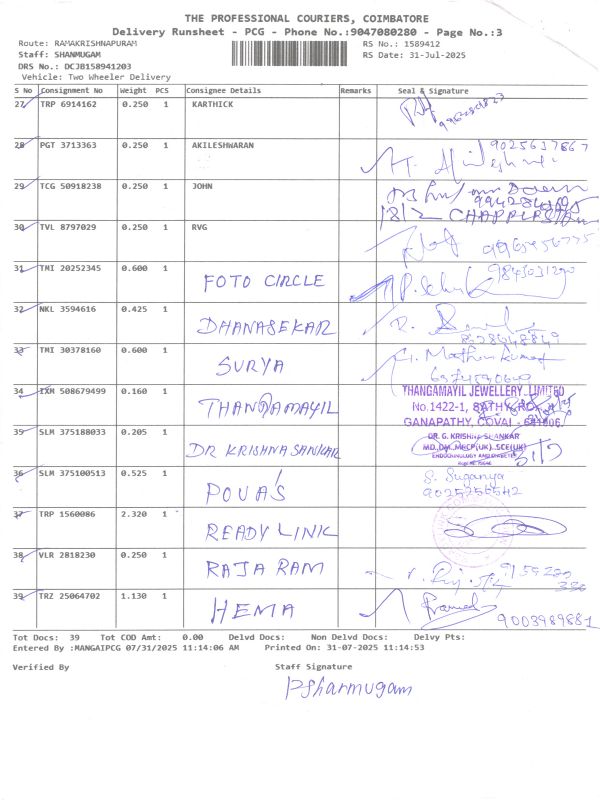 THE PROFESSIONAL COURIERS, COIMBATORE
Delivery Runsheet - PCG - Phone No.:9047080280 - Page No.:3
Route: RAMAKRISHNAPURAM
Staff: SHANMUGAM
DRS No.: DCJB158941203
Vehicle: Two Wheeler Delivery
RS No.: 1589412
RS Date: 31-Jul-2025
S No Consignment No Weight PCS Consignee Details Remarks Seal & Signature
27 TRP 6914162 0.250 1 KARTHICK
28 PGT 3713363 0.250 1 AKILESHWARAN 9025637867
29 TCG 50918238 0.250 1 JOHN
30 TVL 8797029 0.250 1 RVG
31 TMI 20252345 0.600 1 FOTO CIRCLE
32 NKL 3594616 0.425 1 DHANASEKAR
33 TMI 30378160 0.600 1 SURYA
34 IXM 508679499 0.160 1 THANGAMAYIL
THANGAMAYIL JEWELLERY LIMITED
No.1422-1, SATHY ROAD
GANAPATHY, COVAI - 641006
35 SLM 375188033 0.205 1 DR KRISHNASANKAR
DR. G. KRISHNA SHANKAR
36 SLM 375100513 0.525 1 POVA'S
S. Suganya
9025256542
37 TRP 1560086 2.320 1 READY LINK
38 VLR 2818230 0.250 1 RAJA RAM
39 TRZ 25064702 1.130 1 HEMA
9003989881
Tot Docs: 39 Tot COD Amt: 0.00 Delvd Docs: Non Delvd Docs: Delvy Pts:
Entered By :MANGAIPCG 07/31/2025 11:14:06 AM Printed On: 31-07-2025 11:14:53
Verified By Staff Signature
PShanmugam